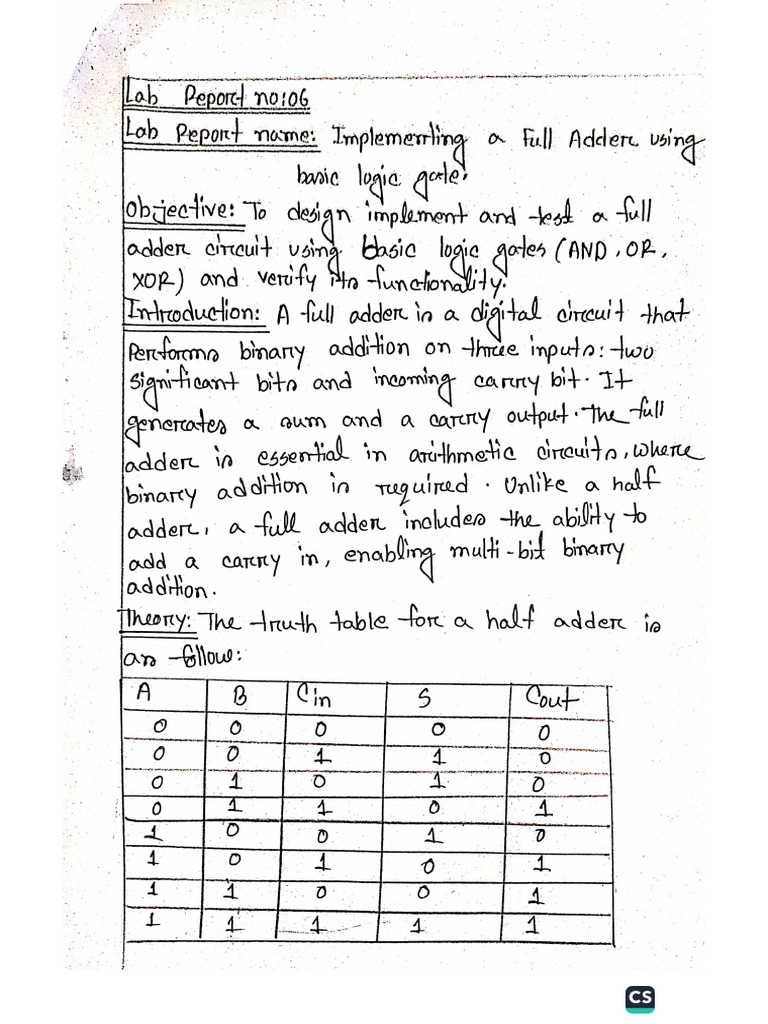 Lab Report no:06
Lab Report name: Implementing a Full Adder using
basic logic gate.
Objective: To design implement and test a full
adder circuit using basic logic gates (AND, OR,
XOR) and verify its functionality.
Introduction: A full adder is a digital circuit that
Performs binary addition on three inputs: two
significant bits and incoming carry bit. It
generates a sum and a carry output. The full
adder is essential in arithmetic circuits, where
binary addition is required. Unlike a half
adder, a full adder includes the ability to
add a carry in, enabling multi-bit binary
addition.
Theory: The truth table for a half adder is
as follow:
A B Cin S Cout
0 0 0 0 0
0 0 1 1 0
0 1 0 1 0
0 1 1 0 1
1 0 0 1 0
1 0 1 0 1
1 1 0 0 1
1 1 1 1 1
CS